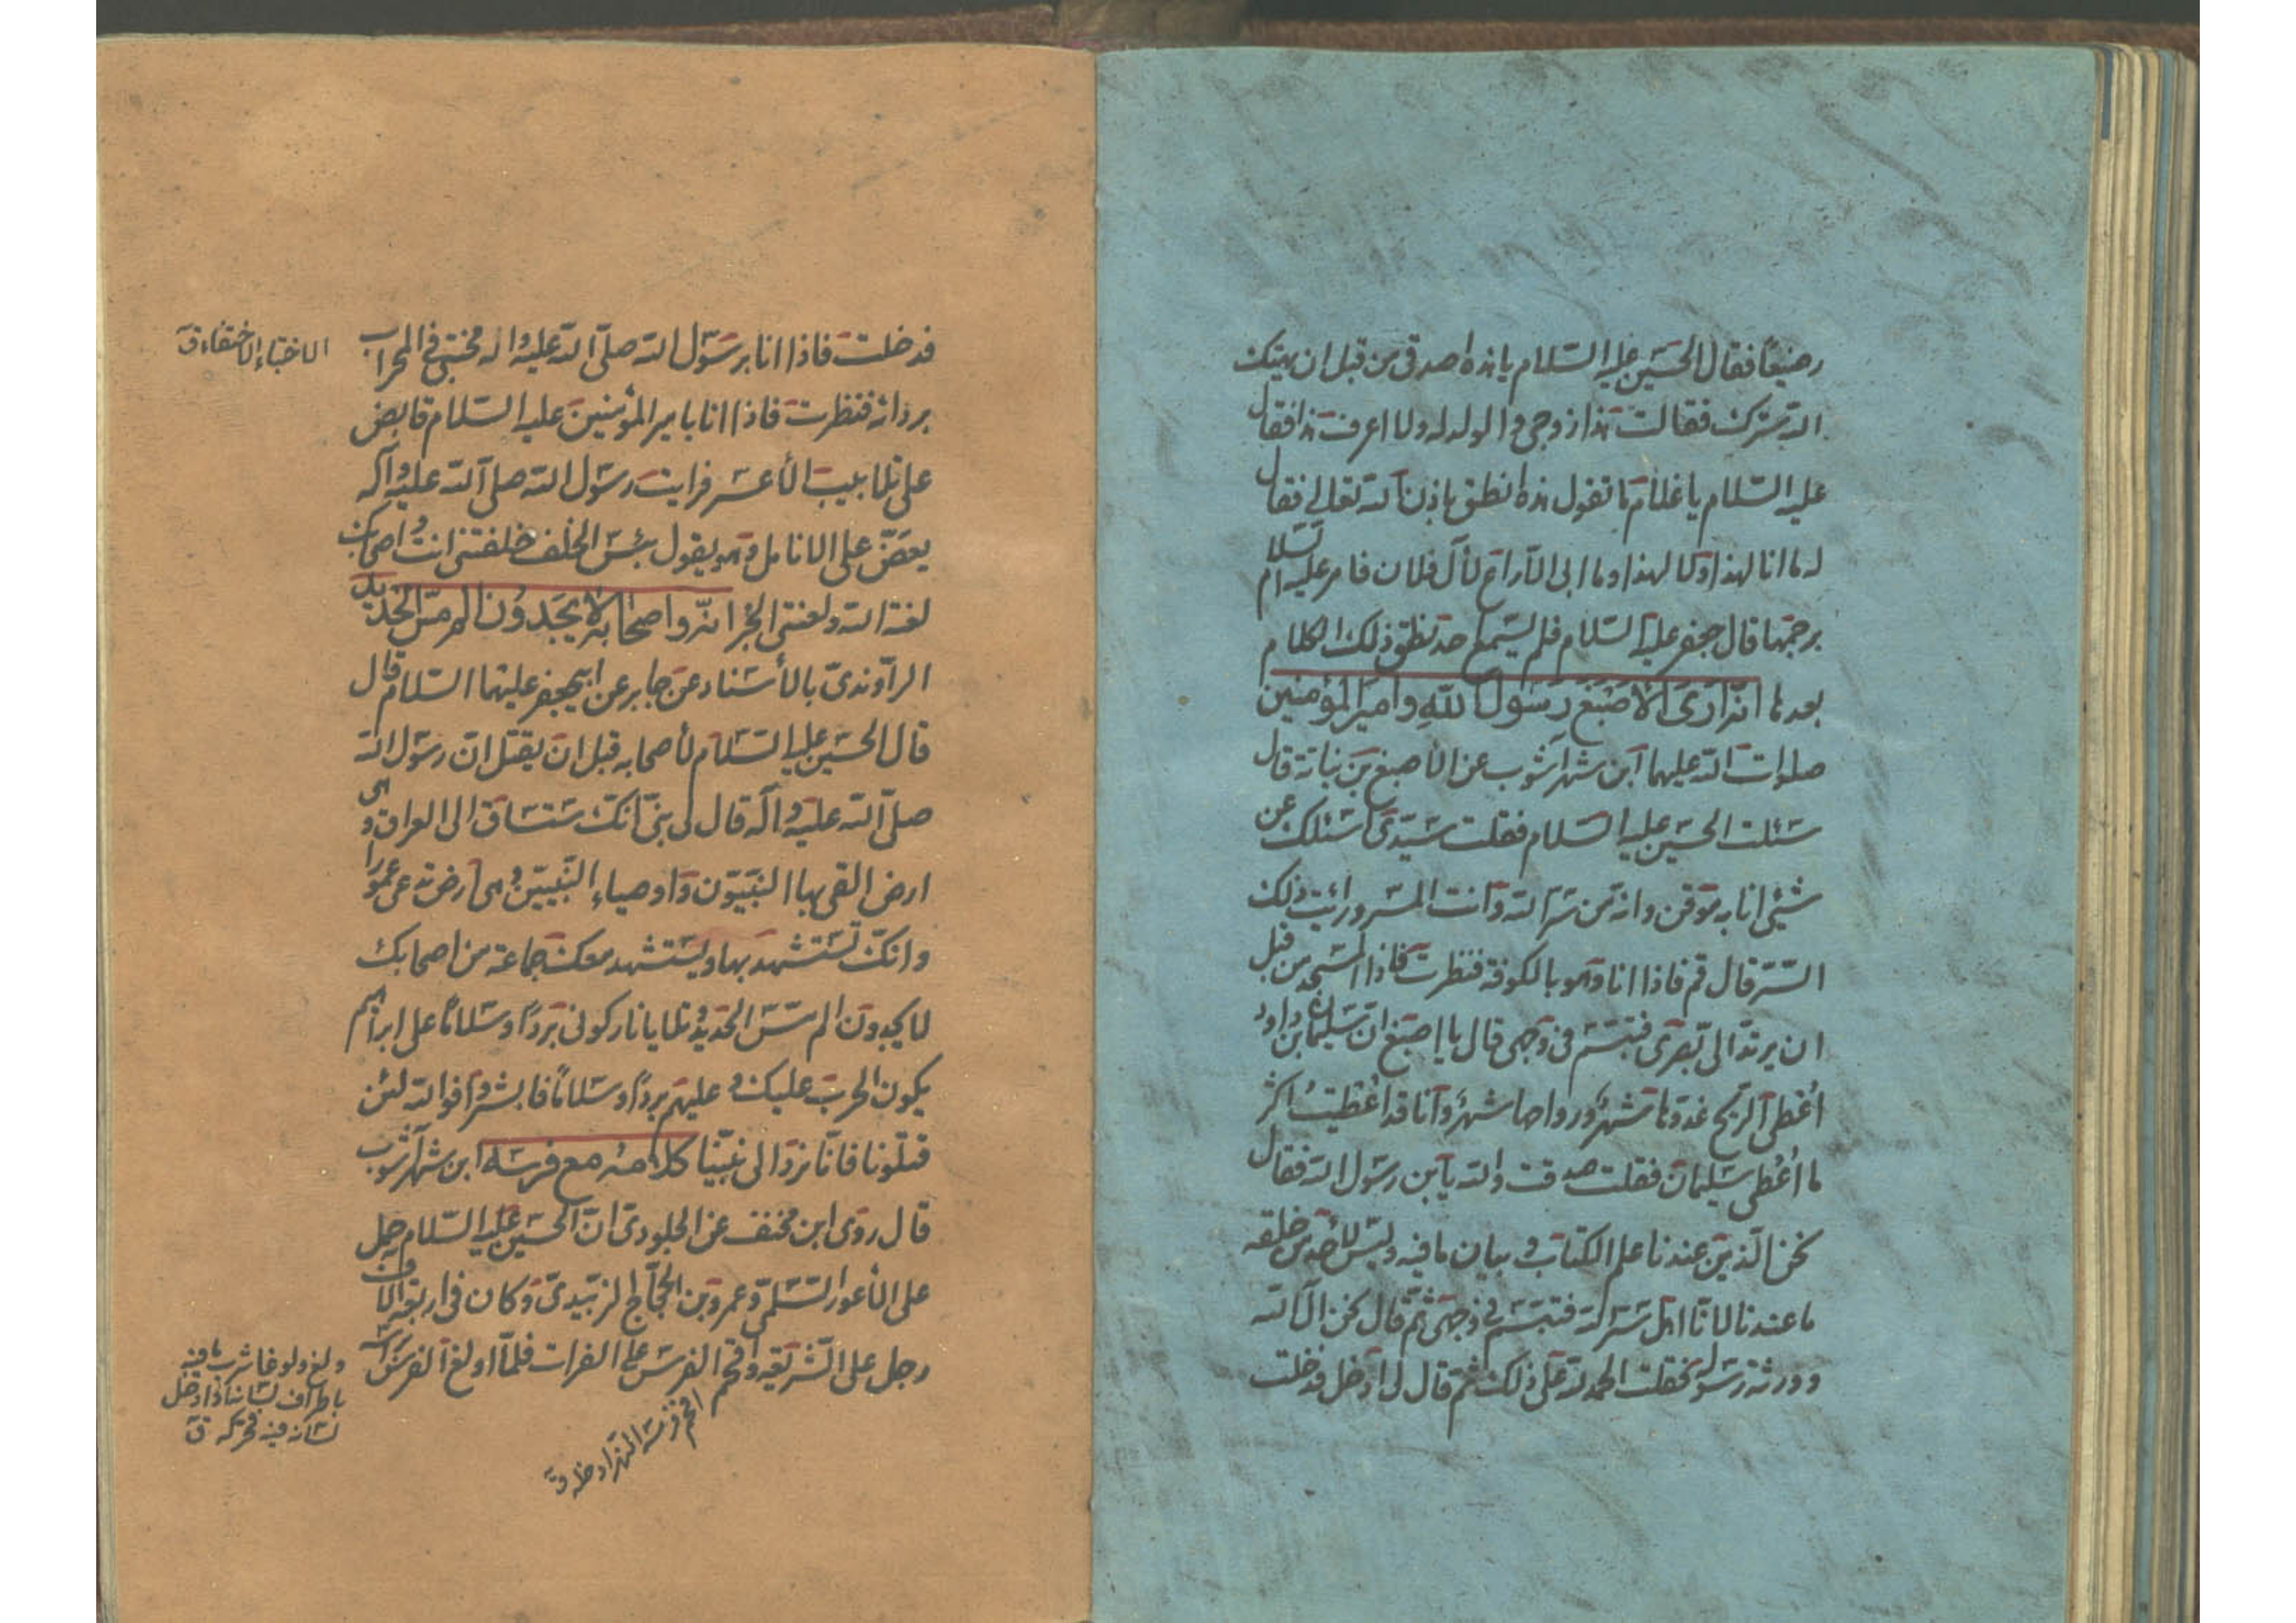 رضيعًا فقال الحسين عليه السّلام يا هذه اصدقى من قبل ان يهتك
الله سترك فقالت هذا زوجى والولد له ولا اعرف هذا فقال
عليه السّلام يا غلام ما تقول هذه انطق باذن الله تعالى فقال
له ما انا لهذا ولا لهذا وما ابى الّا راع لآل فلان فامر عليه السّلام
برجمها قال جعفر عليه السّلام فلم يسمع احد نطق ذلك الكلام
بعدها انّه ارى الاصبغ رسول الله وامير المؤمنين
صلوات الله عليهما ابن شهرآشوب عن الأصبغ بن نباتة قال
سئلت الحسين عليه السّلام فقلت سيّدى اسئلك عن
شيئ انا به موقن وانه من سرّ الله وانت المسرور اليه ذلك
السّر فقال قم فاذا انا وهو بالكوفة فنظرت فاذا المسجد من قبل
ان يرتدّ الىّ بصرى فتبسّم فى وجهى قال يا اصبغ ان سليمان بن داود
اُعْطى الريح غدوّها شهر ورواحها شهر وانا قد اُعْطيتُ اكثر
ما اُعْطى سليمان فقلت صدقت والله يا بن رسول الله فقال
نحن الّذين عندنا علم الكتاب و بيان ما فيه وليس لأحد من خلقه
ما عندنا لانّا اهل سرّ الله فتبسّم فى وجهى ثمّ قال نحن آل الله
وورثة رسوله فقلت الحمد لله على ذلك ثمّ قال لى ادخل فدخلت
فدخلت فاذا انا برسول الله صلّى الله عليه واله مختبئ فى المحراب
الاختباء الاختفاء ق
بردائه فنظرت فاذا انا بامير المؤمنين عليه السّلام قابض
على تلابيب الأعسر فرايت رسول الله صلّى الله عليه وآله
يعضّ على الانامل وهو يقول بئس الخلف خلفتنى انت واصحابك
لعنة الله ولعنتى الخبر انّه واصحابه لا يجدون الم مسّ الحديد
الراوندىّ بالأسناد عن جابر عن ابيجعفر عليهما السّلام قال
قال الحسين عليه السّلام لأصحابه قبل ان يقتل انّ رسول الله
صلّى الله عليه وآله قال لى بنىّ انّك ستساق الى العراق وهى
ارض التقى بها النبيّون واوصياء النّبيين وهى ارض تدعى عمورا
وانّك تستشهد بها ويستشهد معك جماعة من اصحابك
لا يجدون الم مسّ الحديد وتلا يا نار كونى بردًا وسلامًا على ابراهيم
يكون الحرب عليك و عليهم بردًا وسلامًا فابشروا فوالله لئن
قتلونا فانّا نرد الى نبيّنا كلامه مع فرسه ابن شهرآشوب
قال روى ابن مخنف عن الجلودىّ انّ الحسين عليه السّلام حمل
على الأعور السّلمىّ وعمرو بن الحجّاج الزبيدىّ وكان فى اربعة آلاف
رجل على الشّريعه واقحم الفرس على الفرات فلمّا اولغ الفرس راسه
ولغ ولوغا شرب ما فيه
باطراف لسانه اذا ادخل
لسانه فيه فحركه ق
اقحم فرسه النهر ادخله ق